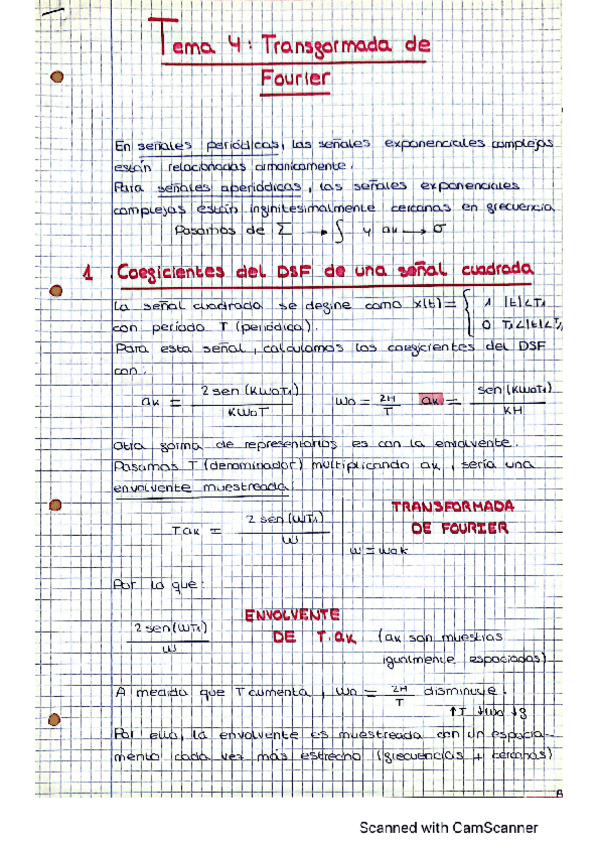 Tema 4: Transformada de
Fourier
En señales periódicas, las señales exponenciales complejas
están relacionadas armonicamente.
Para señales aperiódicas, las señales exponenciales
complejas están infinitesimalmente cercanas en frecuencia.
Pasamos de Σ → ∫ y ak → σ
1. Coeficientes del DSF de una señal cuadrada
La señal cuadrada se define como x(t) = { 1 |t|<T1
con período T (periódica). 0 T1<|t|<T/2
Para esta señal, calculamos los coeficientes del DSF
con:
ak = 2 sen(kω0T1) / kω0T ω0 = 2π/T ak = sen(kω0T1) / kπ
Otra forma de representarlos es con la envolvente.
Pasamos T (denominador) multiplicando ak, sería una
envolvente muestreada:
Tak = 2 sen(ωT1) / ω
TRANSFORMADA
DE FOURIER
ω = ω0k
Por lo que:
2 sen(ωT1) / ω
ENVOLVENTE
DE T·ak (ak son muestras
igualmente espaciadas)
A medida que T aumenta, ω0 = 2π/T disminuye.
↑T ↓ω0 ↓f
Por ello, la envolvente es muestreada con un espacia-
miento cada vez más estrecho (frecuencias + cercanas)
Scanned with CamScanner